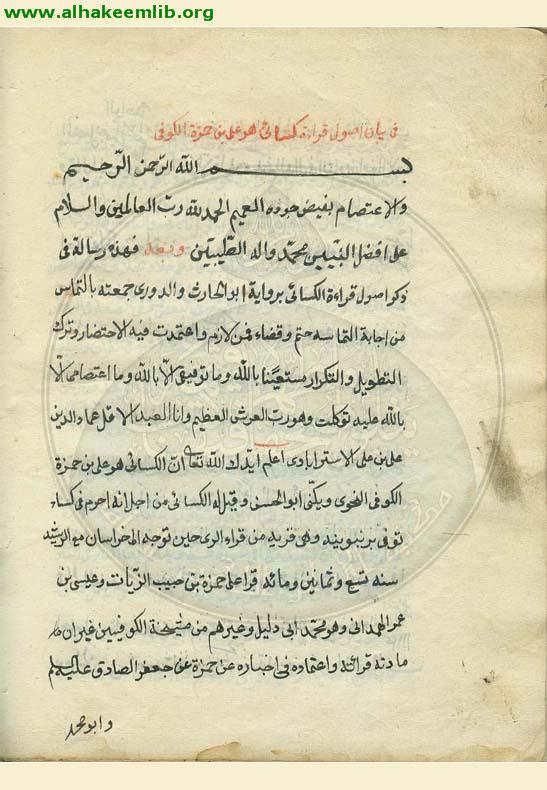 www.alhakeemlib.org
فى بيان اصول قراءة كسائى هو على بن حمزة الكوفى
بسم الله الرحمن الرحيم
والاعتصام بفيض جوده العميم الحمد لله رب العالمين والسلام
على افضل النبيين محمد واله الطيبين وبعد فهذه رسالة فى
ذكر اصول قراءة الكسائى برواية ابو الحارث والدورى جمعته بالتماس
من اجابة التماسه حتم وقضاء فمن لازم واعتمدت فيه الاختصار وترك
التطويل والتكرار مستعينا بالله وما توفيقى الا بالله وما اعتصامى الا
بالله عليه توكلت وهو رب العرش العظيم وانا العبد الاقل عماد الدين
على بن على الاسترابادى اعلم ايدك الله تعالى ان الكسائى هو على بن حمزة
الكوفى النحوى ويكنى ابو الحسن وقيل له الكسائى من اجل انه احرم فى كساء
توفى برنبويه وهى قريه من قراء الرى حين توجه الى خراسان مع الرشيد
سنه تسع وثمانين ومائه قرا على حمزة بن حبيب الزيات وعيسى بن
عمر الهمدانى وهو محمد ابى دليل وغيرهم من مشيخة الكوفيين غير ان
مادته قرائته واعتماده فى اخباره عن حمزة عن جعفر الصادق عليه السلم
وابو محمد